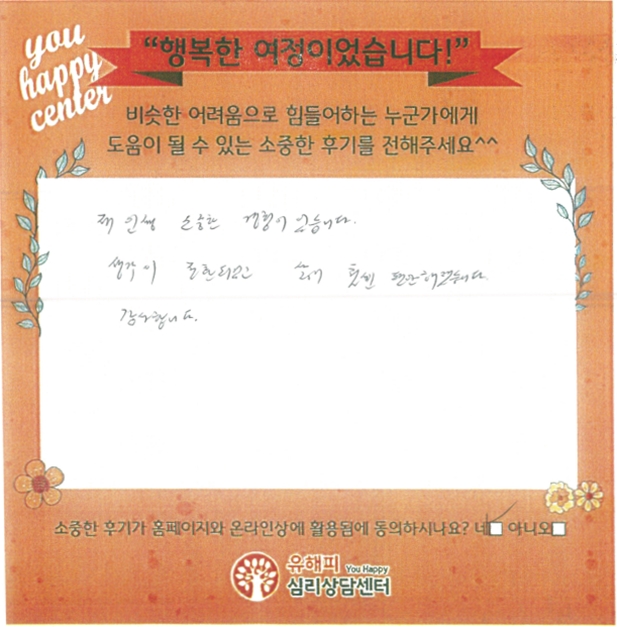 you
happy
center
“행복한 여정이었습니다!”
비슷한 어려움으로 힘들어하는 누군가에게
도움이 될 수 있는 소중한 후기를 전해주세요^^
제 인생 소중한 경험이었습니다.
생각이 전환되었고 삶이 훨씬 편안해졌습니다.
감사합니다.
소중한 후기가 홈페이지와 온라인상에 활용됨에 동의하시나요? 네 아니오
유해피 You Happy
심리상담센터